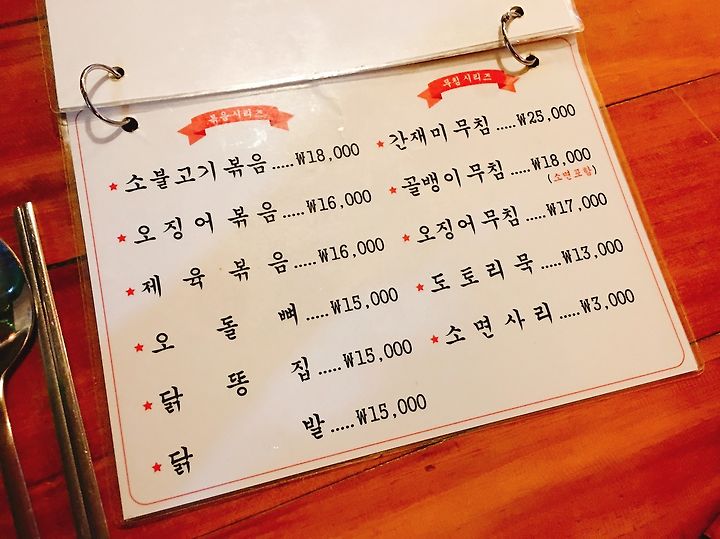 볶음시리즈
소불고기 볶음.....₩18,000
오징어 볶음.....₩16,000
제육볶음.....₩16,000
오돌뼈.....₩15,000
닭똥집.....₩15,000
닭발.....₩15,000
무침시리즈
간재미무침.....₩25,000
골뱅이무침.....₩18,000
(소면포함)
오징어무침.....₩17,000
도토리묵.....₩13,000
소면사리.....₩3,000